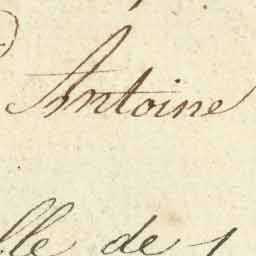 Antoine
lle de